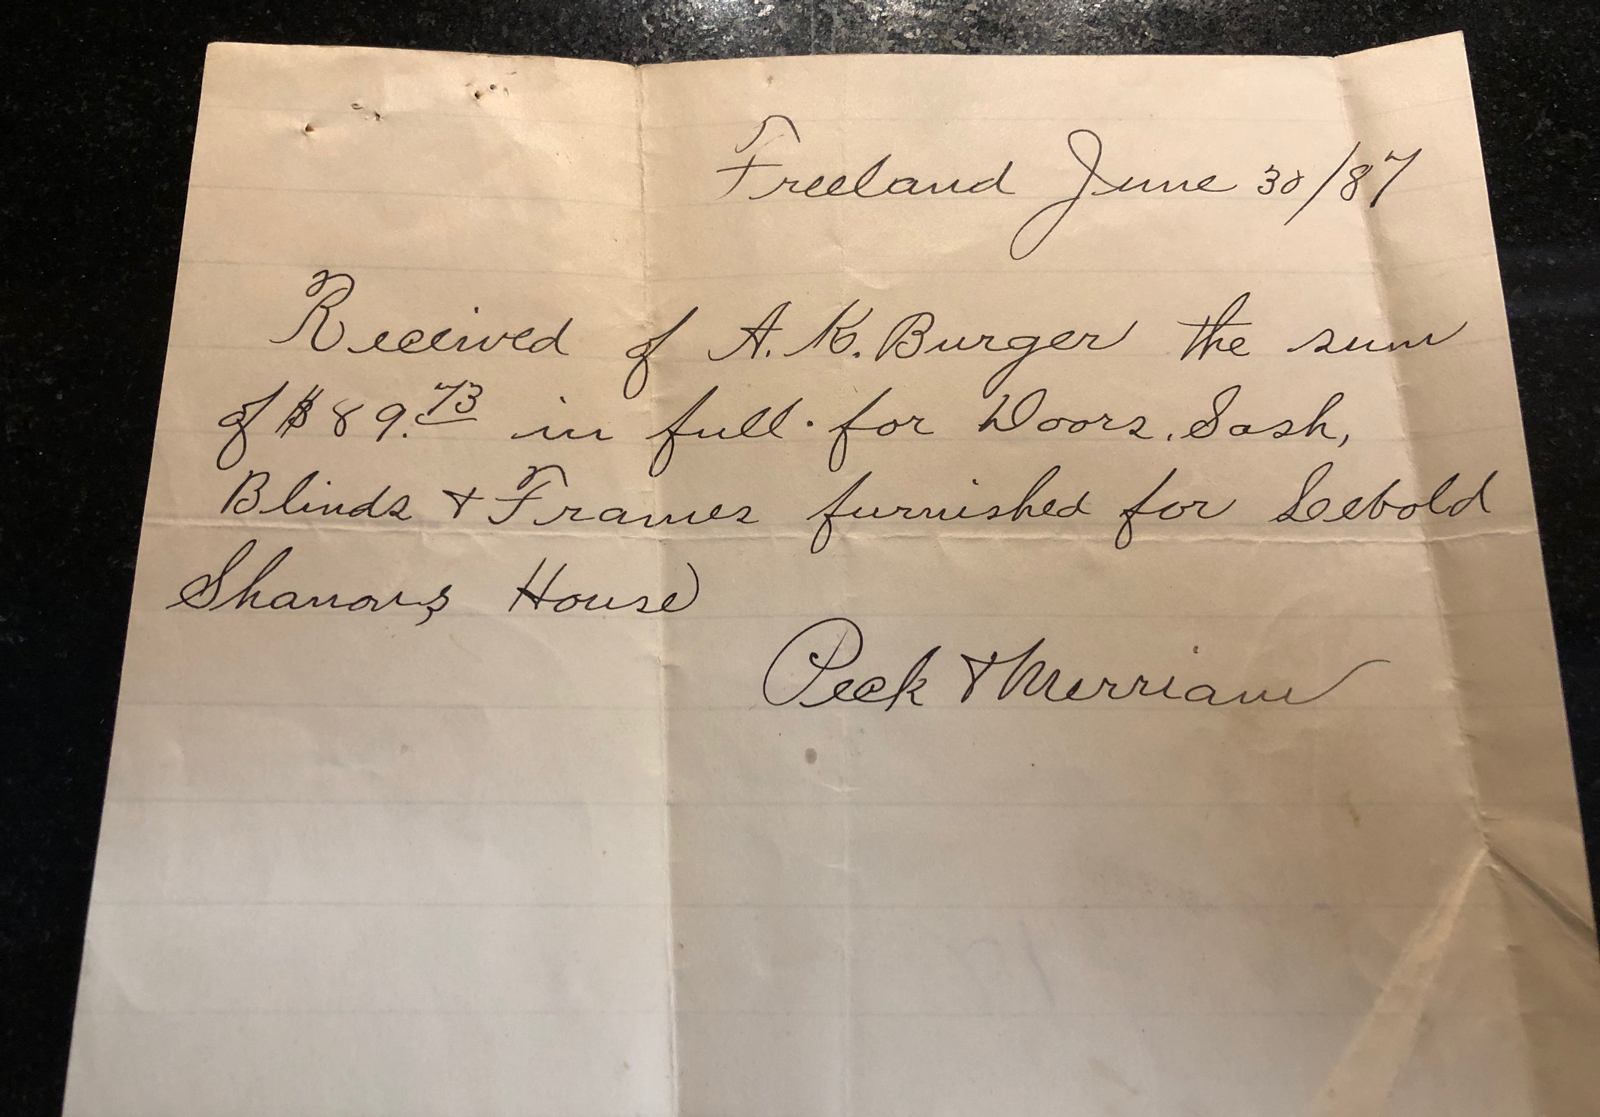 Freeland June 30/87
Received of A. K. Burger the sum
of $89.73 in full. for Doors, Sash,
Blinds & Frames furnished for Leebold
House
Peck & Merriam